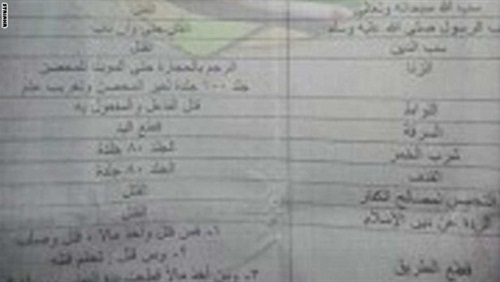 سب الله سبحانه وتعالى القتل
سب الرسول صلى الله عليه وسلم القتل حتى وإن تاب
سب الدين القتل
الزنا الرجم بالحجارة حتى الموت للمحصن
جلد ١٠٠ جلدة لغير المحصن وتغريب عام
اللواط قتل الفاعل والمفعول به
السرقة قطع اليد
شرب الخمر الجلد ٨٠ جلدة
القذف الجلد ٨٠ جلدة
التجسس لصالح الكفار القتل
الردة عن دين الإسلام القتل
١- من قتل وأخذ مالا ، قتل وصلب
قطع الطريق ٢- ومن قتل ، تحتم قتله
٣- ومن أخذ مالا قطعت